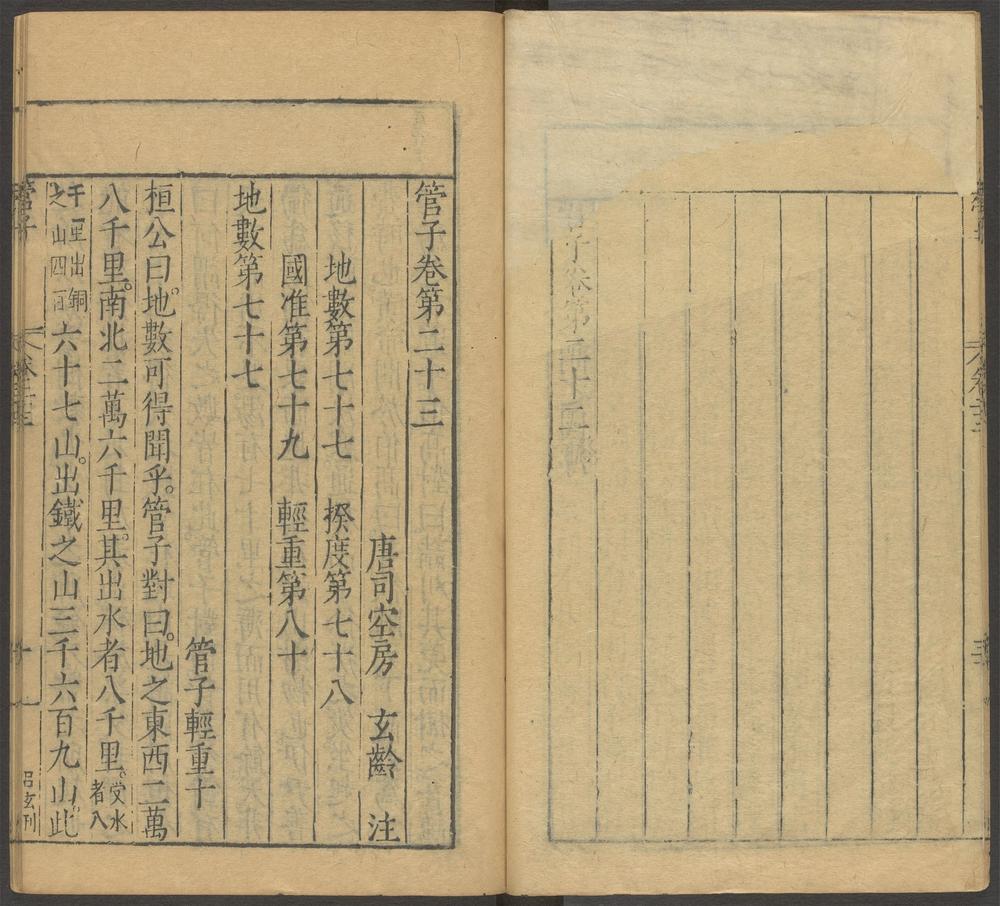 管子卷第二十二
管子卷第二十三
唐司空房　玄齡　注
地數第七十七　揆度第七十八
國准第七十九　輕重第八十
地數第七十七
管子輕重十
桓公曰。地數可得聞乎。管子對曰。地之東西二萬
八千里。南北二萬六千里。其出水者八千里。受水者八
千里出銅之山四百六十七山。出鐵之山三千六百九山。此
管子
卷二十三
一
呂玄刊